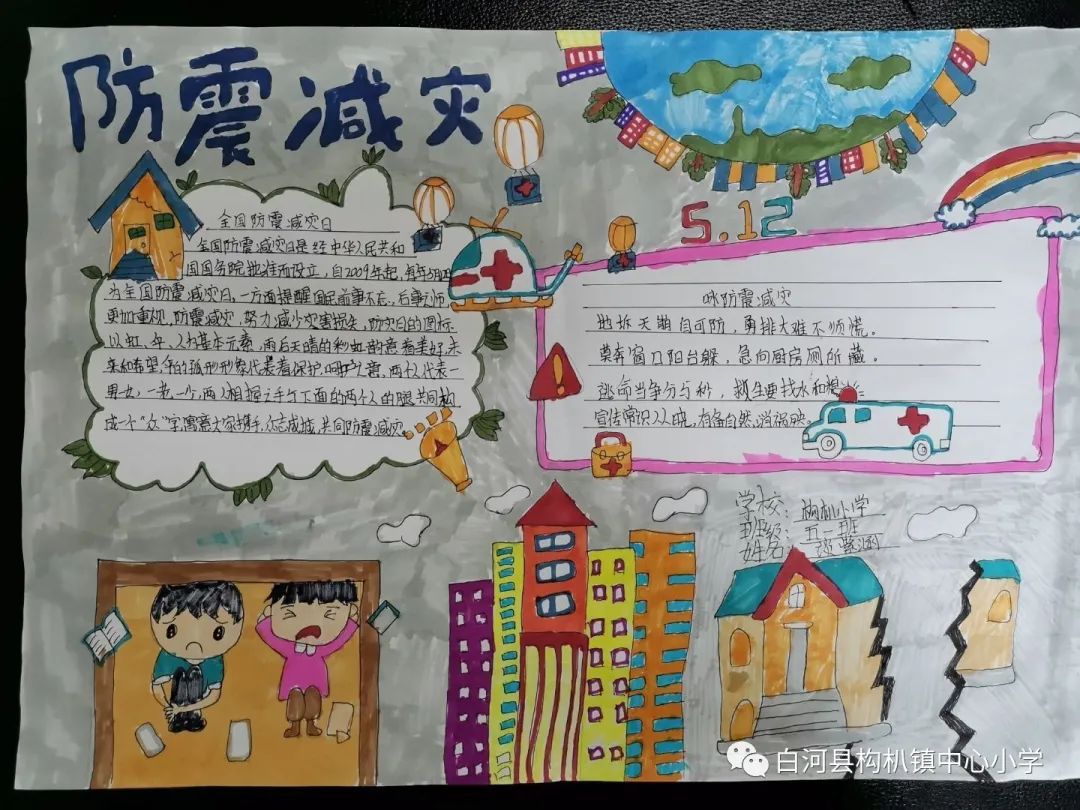 防震减灾
全国防震减灾日
全国防震减灾日是经中华人民共和
国国务院批准而设立，自2009年起，每年5月12
为全国防震减灾日，一方面提醒国民前事不忘，后事之师
更加重视，防震减灾，努力减少灾害损失，防灾日的图标
以虹、伞、人为基本元素，雨后天晴的彩虹韵意着美好，未
来和希望，伞的弧形形象代表着保护，呵护之意，两个人代表一
男女，一老一少，两人相握之手与下面的两个人的腿共同构
成一个“众”字寓意大家携手，众志成城，共同防震减灾。
5.12
咏防震减灾
地拆天崩自可防，勇排大难不须慌。
莫奔窗口阳台躲，急向厨房厕所藏。
逃命当争分与秒，救生要找水和
宣传常识人人晓，有备自然
学校：构朳小学
班级：五一班
姓名：
白河县构朳镇中心小学